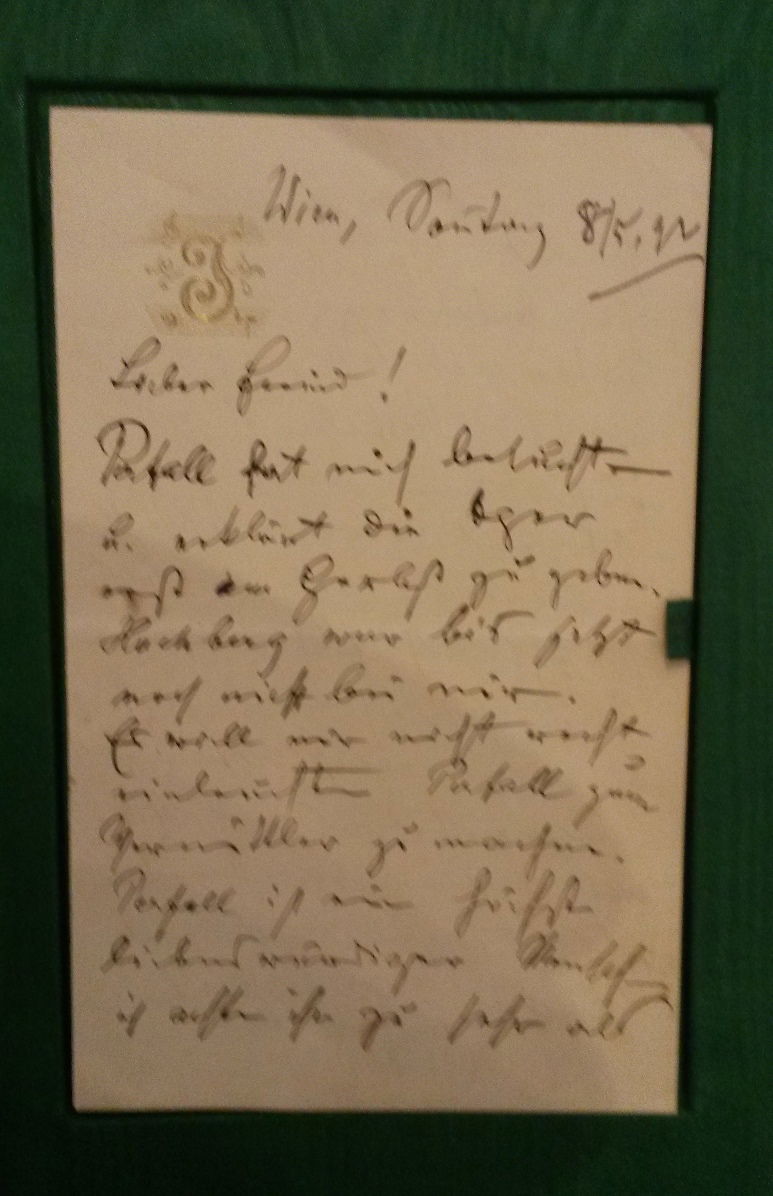 Wien, Sontag 8/5. 92
J
Lieber Freund!
Perfall hat mich besucht
u. erklärt die Oper
erst im Herbst zu geben.
Hochberg war bis jetzt
noch nicht bei mir.
Es will mir nicht recht
einleuchten Perfall zum
Vermittler zu machen.
Perfall ist ein höchst
liebenswürdiger Mensch
ich achte ihn zu sehr als